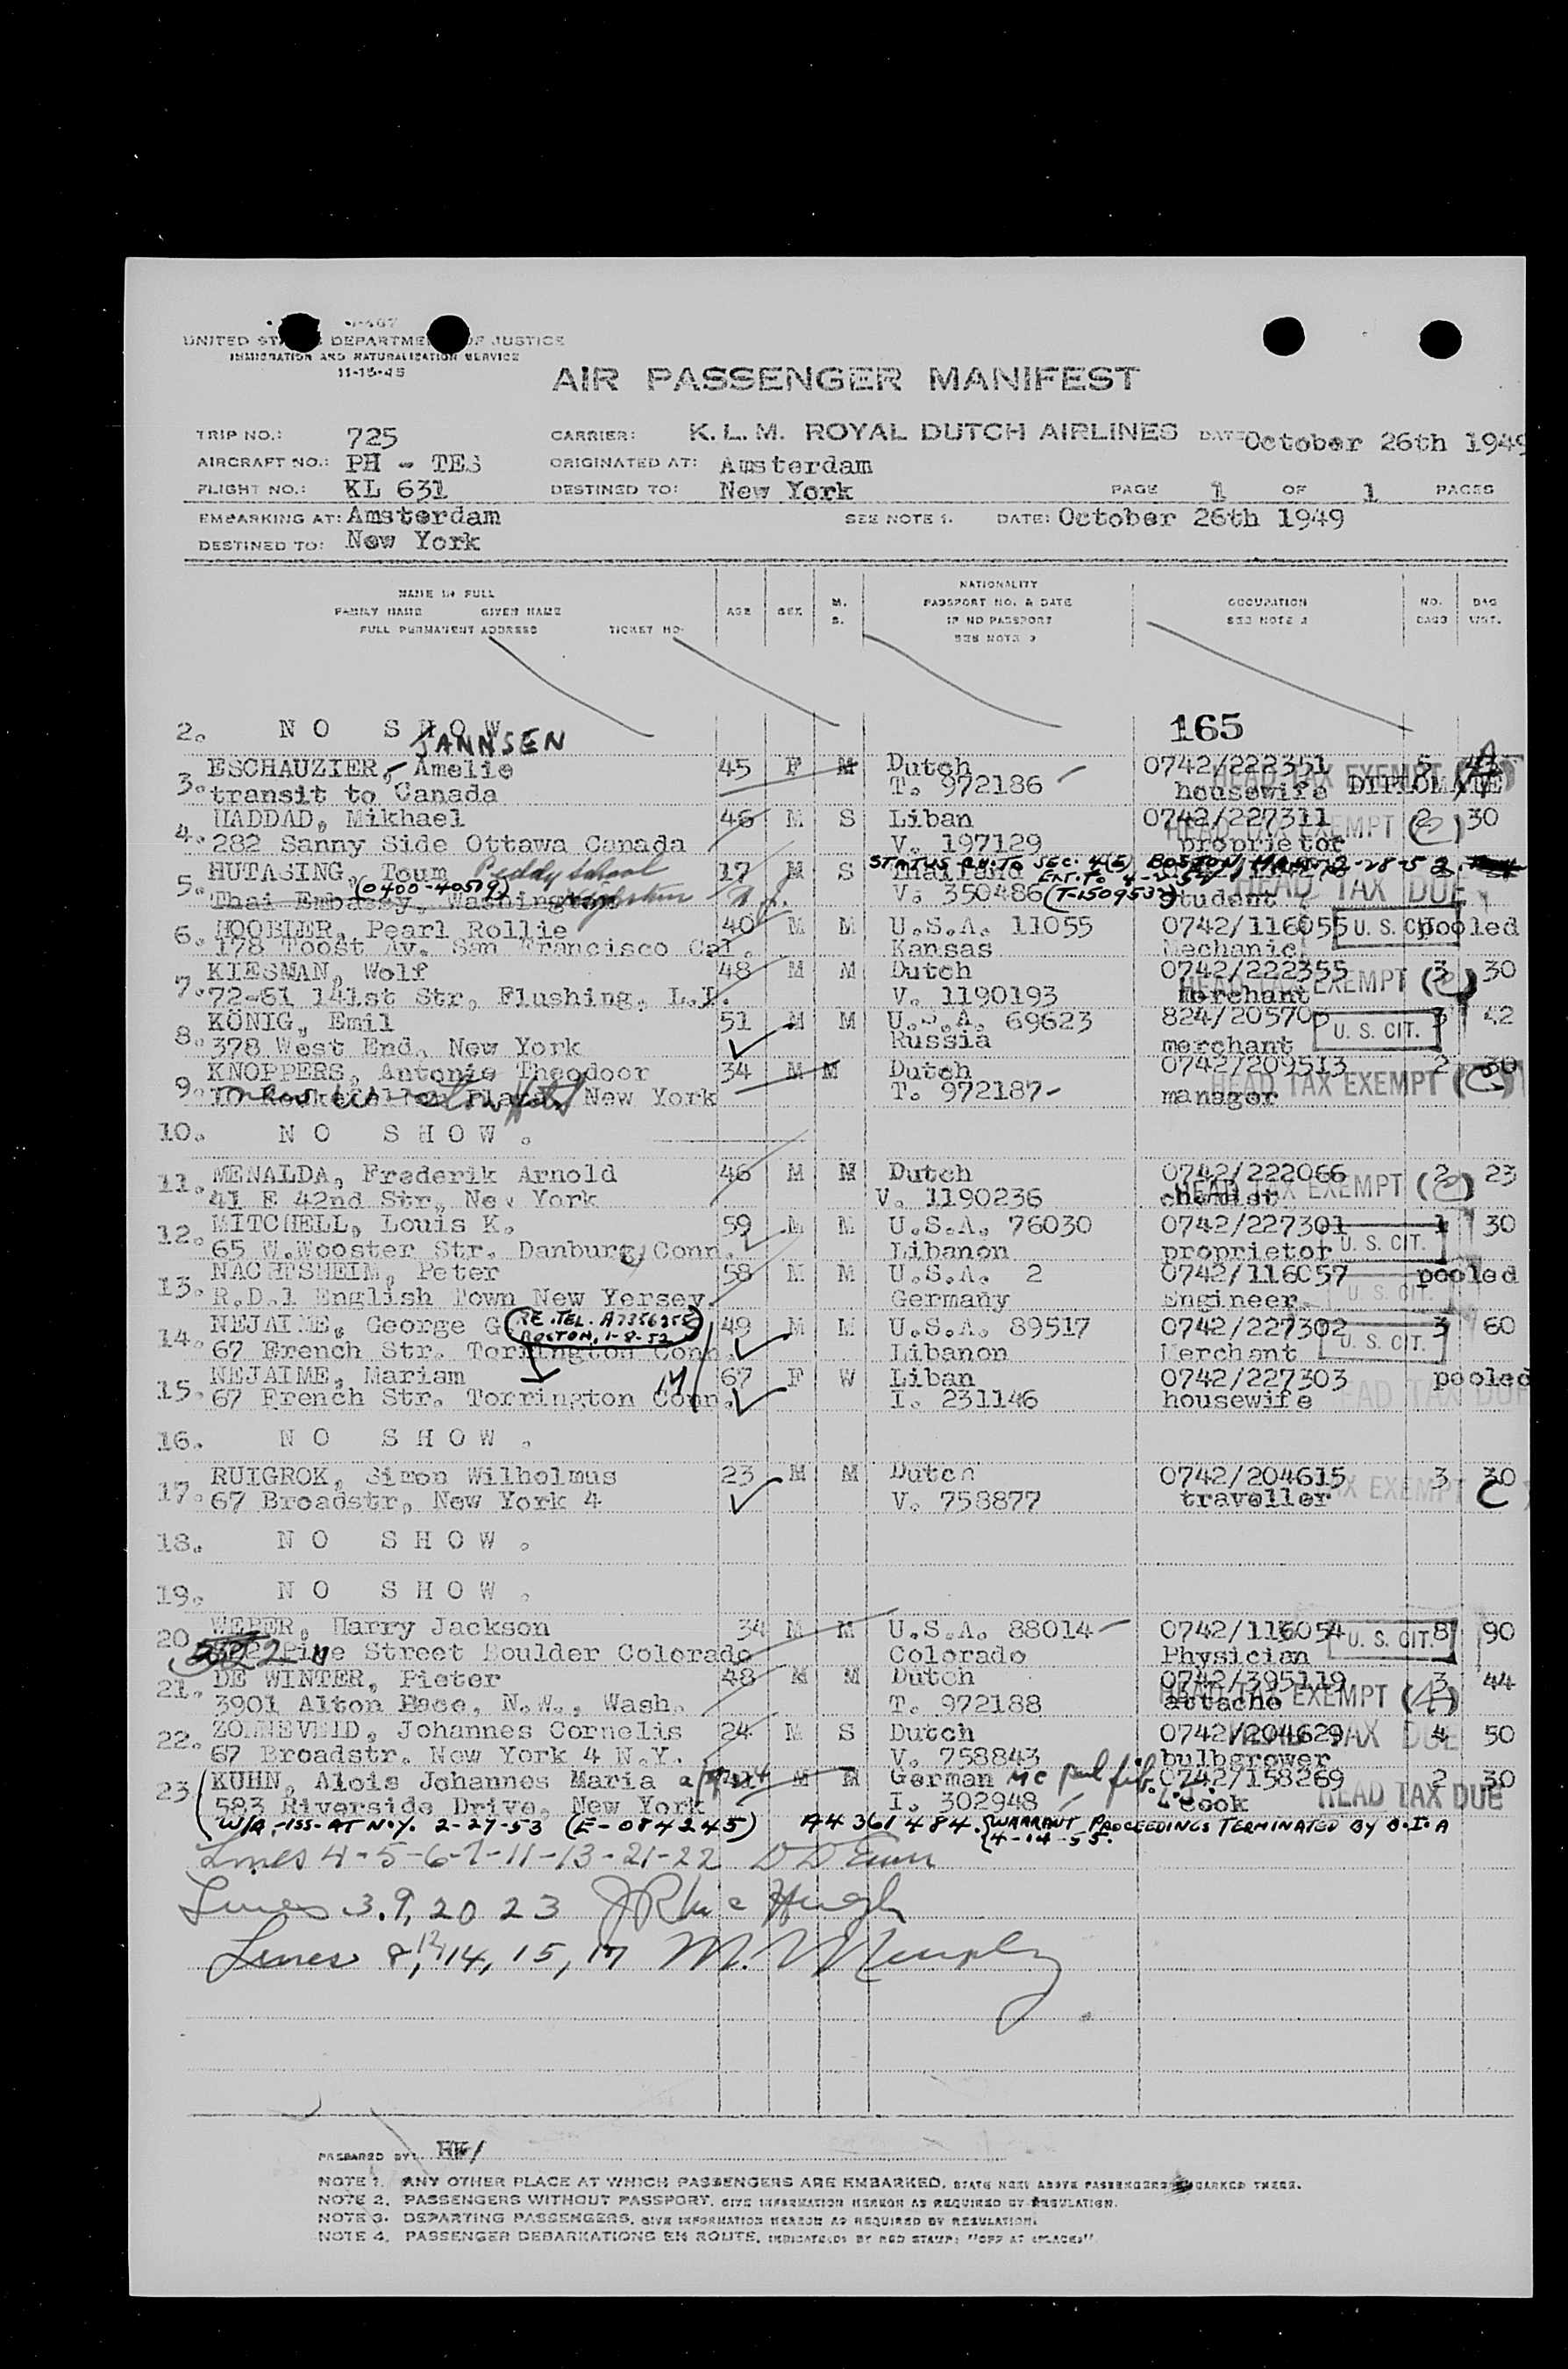 UNITED STATES DEPARTMENT OF JUSTICE
IMMIGRATION AND NATURALIZATION SERVICE
11-15-45
AIR PASSENGER MANIFEST
TRIP NO.: 725 CARRIER: K.L.M. ROYAL DUTCH AIRLINES DATE October 26th 1949
AIRCRAFT NO.: PH - TES ORIGINATED AT: Amsterdam
FLIGHT NO.: KL 631 DESTINED TO: New York PAGE 1 OF 1 PAGES
EMBARKING AT: Amsterdam SEE NOTE 1. DATE: October 26th 1949
DESTINED TO: New York
NAME IN FULL
FAMILY NAME GIVEN NAME
FULL PERMANENT ADDRESS TICKET NO.
AGE SEX M. S.
NATIONALITY
PASSPORT NO. & DATE
IF NO PASSPORT
SEE NOTE 2
OCCUPATION
SEE NOTE 3
NO. BAGS BAG WGT.
2. NO SHOW 165
JANNSEN
3. ESCHAUZIER, Amelie 45 F M Dutch 0742/222351 5
transit to Canada T. 972186 housewife HEAD TAX EXEMPT DIPLOMATE
4. HADDAD, Mikhael 46 M S Liban 0742/227311 2 30
282 Sanny Side Ottawa Canada V. 197129 proprietor HEAD TAX EXEMPT (2)
5. HUTASING, Toum Peddy School 17 M S Thailand STATUS CH. TO SEC. 4(E) BOSTON, MASS. 2-28-52
(0400-40519) EXT. TO
Thai Embassy, Washington N.J. V. 350486 (T-1509537) student HEAD TAX DUE
6. HOOBLER, Pearl Rollie 40 M M U.S.A. 11055 0742/116055 U. S. CIT. pooled
178 Toost Av. San Francisco Cal. Kansas Mechanic
7. KIESMAN, Wolf 48 M M Dutch 0742/222355 3 30
72-61 141st Str, Flushing, L.I. V. 1190193 merchant HEAD TAX EXEMPT (2)
8. KÖNIG, Emil 51 M M U.S.A. 69623 824/205705 3 42
378 West End, New York Russia merchant U. S. CIT.
9. KNOPPERS, Antonie Theodoor 34 M M Dutch 0742/209513 2 30
10 Rockefeller Plaza, New York T. 972187 manager HEAD TAX EXEMPT
10. NO SHOW.
11. MENALDA, Frederik Arnold 46 M M Dutch 0742/222066 2 23
41 E 42nd Str, New York V. 1190236 chemist HEAD TAX EXEMPT (2)
12. MITCHELL, Louis K. 59 M M U.S.A. 76030 0742/227301 1 30
65 W.Wooster Str. Danburg, Conn. Libanon proprietor U. S. CIT.
13. NACHTSHEIM, Peter 58 M M U.S.A. 2 0742/116057 pooled
R.D.1 English Town New Yersey. Germany Engineer U. S. CIT.
14. NEJAIME, George G (RE. TEL. A7356258 49 M M U.S.A. 89517 0742/227302 3 60
BOSTON, 1-8-52)
67 French Str. Torrington Conn. Libanon Merchant U. S. CIT.
15. NEJAIME, Mariam 67 F W Liban 0742/227303 pooled
67 French Str. Torrington Conn. I. 231146 housewife HEAD TAX DUE
16. NO SHOW.
17. RUIGROK, Simon Wilhelmus 23 M M Dutch 0742/204615 3 30
67 Broadstr, New York 4 V. 758877 traveller TAX EXEMPT C
18. NO SHOW.
19. NO SHOW.
20. WEBER, Harry Jackson 34 M M U.S.A. 88014 0742/116054 8 90
Pine Street Boulder Colorado Colorado Physician U. S. CIT.
21. DE WINTER, Pieter 48 M M Dutch 0742/395119 3 44
3901 Alton Pace, N.W., Wash. T. 972188 attache HEAD TAX EXEMPT
22. ZONNEVELD, Johannes Cornelis 24 M S Dutch 0742/204629 4 50
67 Broadstr. New York 4 N.Y. V. 758843 bulbgrower HEAD TAX DUE
23. KUHN, Alois Johannes Maria M M German 0742/158269 2 30
583 Riverside Drive, New York I. 302948 cook HEAD TAX DUE
W/A.-ISS- AT N.Y. 2-27-53 (E-084245) A4 361 484. WARRANT PROCEEDINGS TERMINATED BY B.I.A
4-14-55.
Lines 4-5-6-7-11-13-21-22
Lines 3. 9, 20 23 J R Mc Hugh
Lines 8, 12, 14, 15, 17 M. V Murphy
PREPARED BY: HK/
NOTE 1. ANY OTHER PLACE AT WHICH PASSENGERS ARE EMBARKED, STATE NEXT ABOVE PASSENGERS EMBARKED THERE.
NOTE 2. PASSENGERS WITHOUT PASSPORT, GIVE INFORMATION HEREON AS REQUIRED BY REGULATION.
NOTE 3. DEPARTING PASSENGERS, GIVE INFORMATION HEREON AS REQUIRED BY REGULATION.
NOTE 4. PASSENGER DEBARKATIONS EN ROUTE, INDICATE(D) BY RED STAMP: "OFF AT (PLACE)"